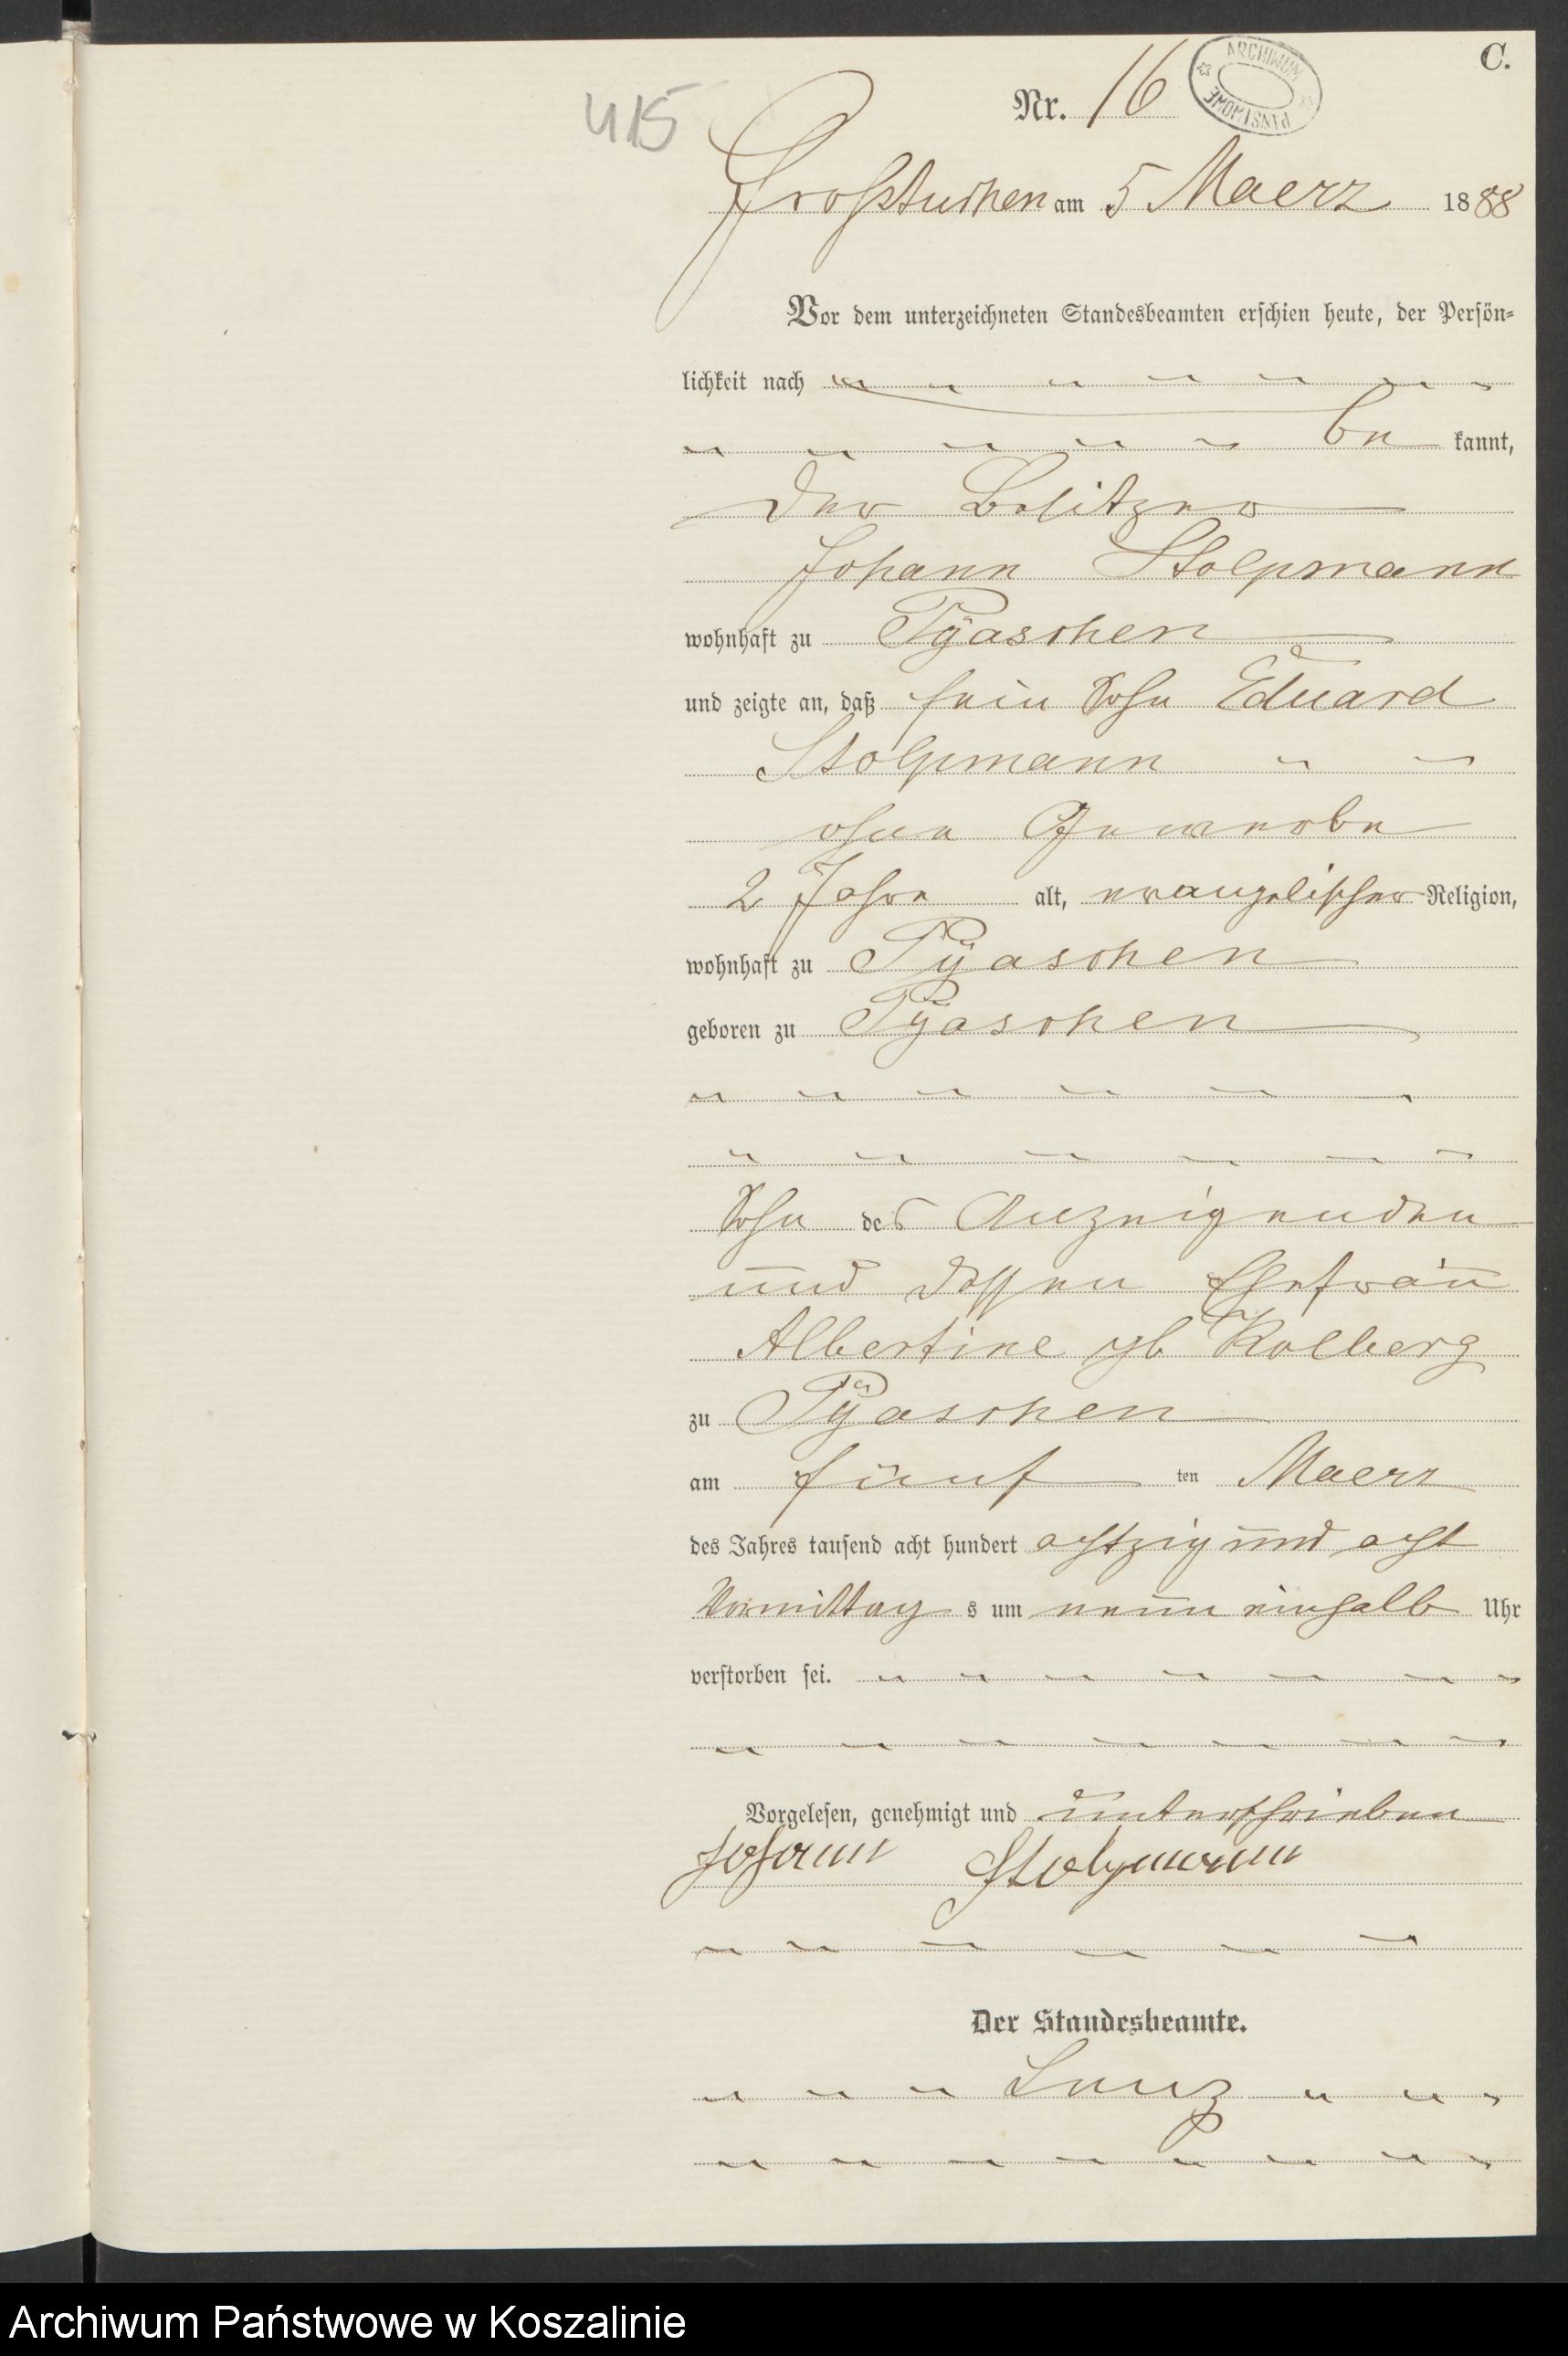 C.
415
Nr. 16
ARCHIWUM PAŃSTWOWE
Großtuchen am 5 Maerz 1888
Vor dem unterzeichneten Standesbeamten erschien heute, der Persön-
lichkeit nach
be kannt,
der Besitzer
Johann Stolpmann
wohnhaft zu Pÿaschen
und zeigte an, daß sein Sohn Eduard
Stolpmann
ohne Gewerbe
2 Jahre alt, evangelischer Religion,
wohnhaft zu Pÿaschen
geboren zu Pÿaschen
Sohn des Anzeigenden
und dessen Ehefrau
Albertine gb Kolberg
zu Pÿaschen
am fünf ten Maerz
des Jahres tausend acht hundert achtzig und acht
Vormittag s um neun einhalb Uhr
verstorben sei.
Vorgelesen, genehmigt und unterschrieben
Johann Stolpmann
Der Standesbeamte.
Archiwum Państwowe w Koszalinie